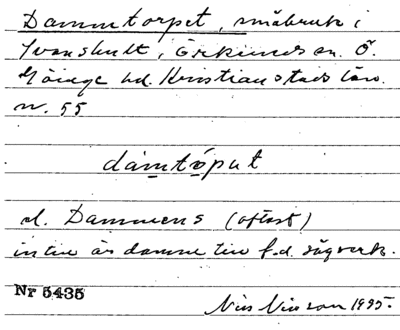 Dammtorpet, småbruk i
Ivanshult, Örkeneds sn. Ö.
Göinge hd. Kristianstads län.
nr. 55
dàmtȯput
el. Dammens (oftast)
intill är damm till f.d. sågverk.
Nr 5435
Nils Nilsson 1935.